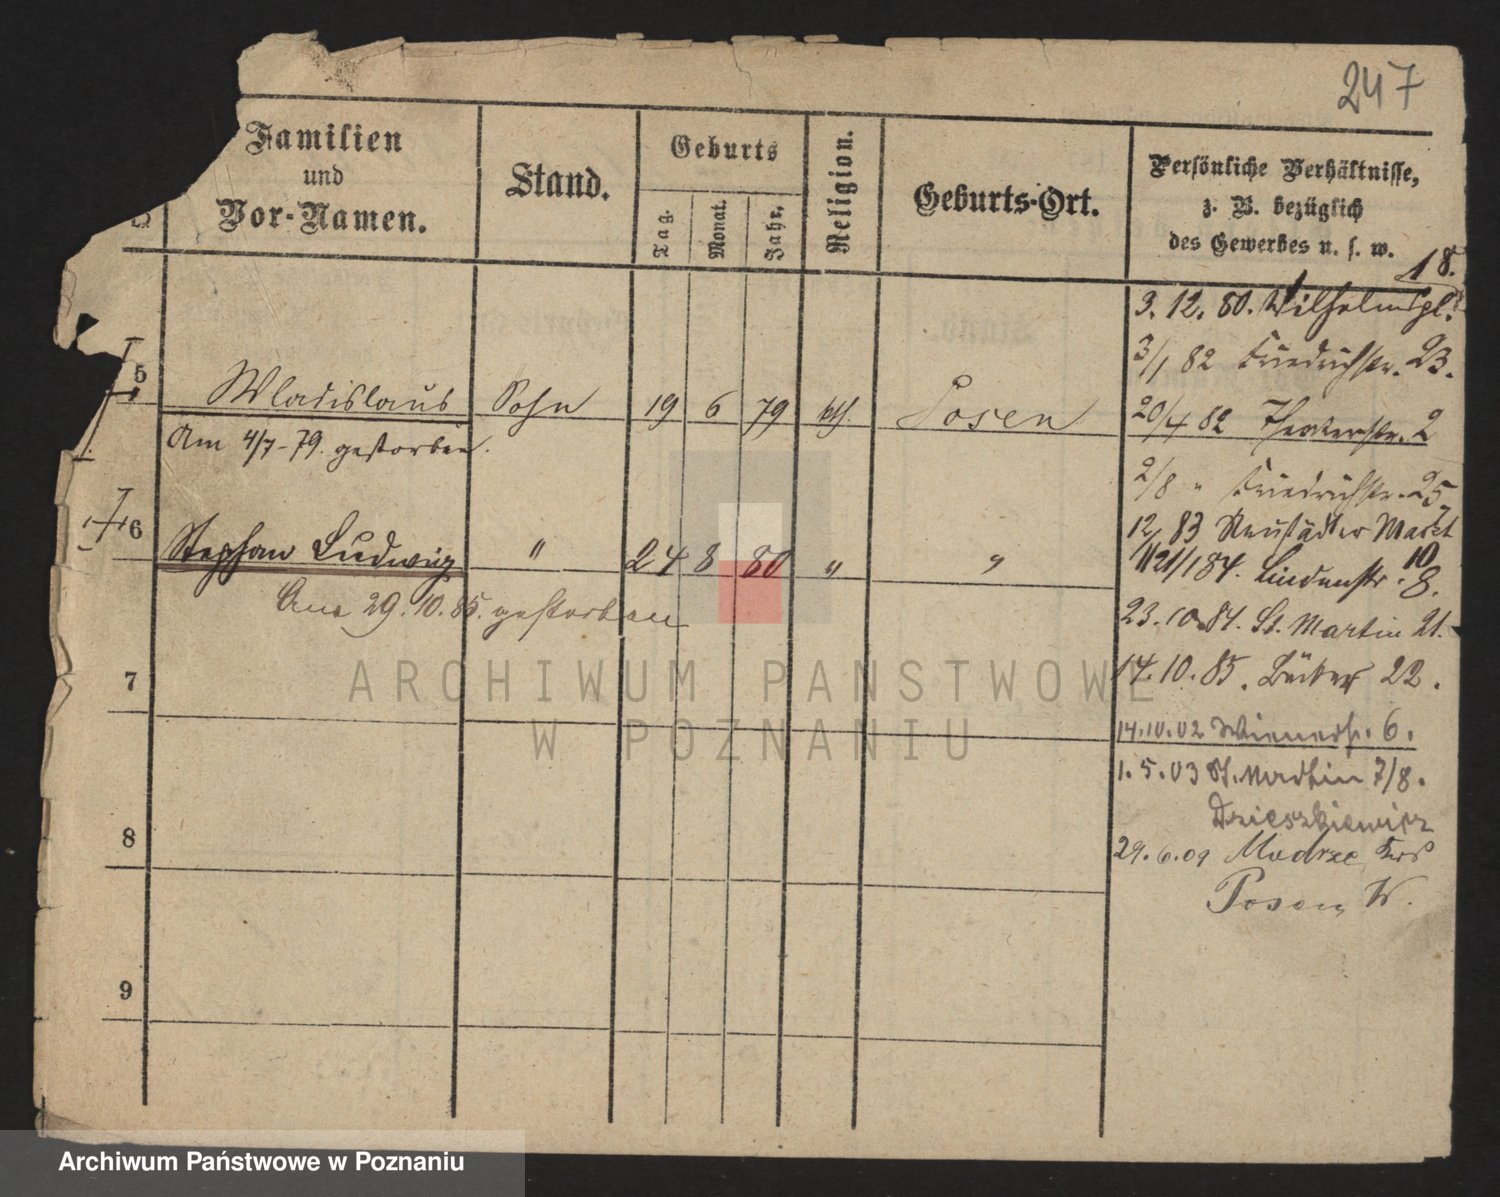 247
Familien
und
Vor-Namen.
Stand.
Geburts
Tag.
Monat.
Jahr.
Religion.
Geburts-Ort.
Persönliche Verhältnisse,
z. B. bezüglich
des Gewerbes u. s. w.
18.
3. 12. 80. Wilhelmspl.
3/1 82 Friedrichstr. 23.
5 Wladislaus Sohn 19 6 79 kth. Posen
20/4 82 Theaterstr. 2
Am 4/7-79. gestorben.
2/8 " Friedrichstr. 25.
12/ 83 Neustädter Markt
10
6 Stephan Ludwig " 24 8 80 " "
21/1 84. Lindenstr. 8.
Am 29. 10. 85. gestorben
23. 10. 84. St. Martin 21.
7
14. 10. 85. Bäcker 22.
14.10.02 Wienerstr. 6.
1. 5. 03 St. Martin 7/8.
8
29. 6. 09 Modrze
Posen W.
9
ARCHIWUM PAŃSTWOWE
W POZNANIU
Archiwum Państwowe w Poznaniu